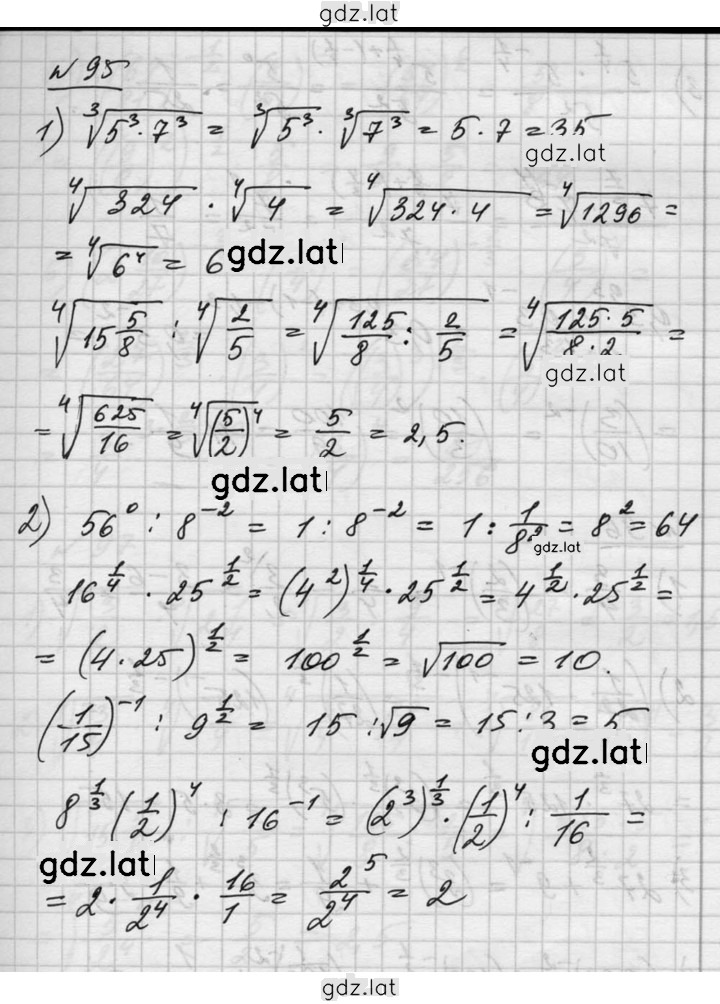 gdz.lat
№ 95
1) ∛(5³·7³) = ∛(5³) · ∛(7³) = 5·7 = 35
gdz.lat
∜324 · ∜4 = ∜(324·4) = ∜1296 =
= ∜(6⁴) = 6
gdz.lat
∜(15 5/8) : ∜(2/5) = ∜(125/8 : 2/5) = ∜((125·5)/(8·2)) =
gdz.lat
= ∜(625/16) = ∜((5/2)⁴) = 5/2 = 2,5.
gdz.lat
2) 56⁰ : 8⁻² = 1 : 8⁻² = 1 : 1/8² = 8² = 64
gdz.lat
16^(1/4) · 25^(1/2) = (4²)^(1/4) · 25^(1/2) = 4^(1/2) · 25^(1/2) =
= (4·25)^(1/2) = 100^(1/2) = √100 = 10.
(1/15)⁻¹ : 9^(1/2) = 15 : √9 = 15 : 3 = 5
gdz.lat
8^(1/3) (1/2)⁴ : 16⁻¹ = (2³)^(1/3) · (1/2)⁴ : 1/16 =
gdz.lat
= 2 · 1/2⁴ · 16/1 = 2⁵/2⁴ = 2
gdz.lat